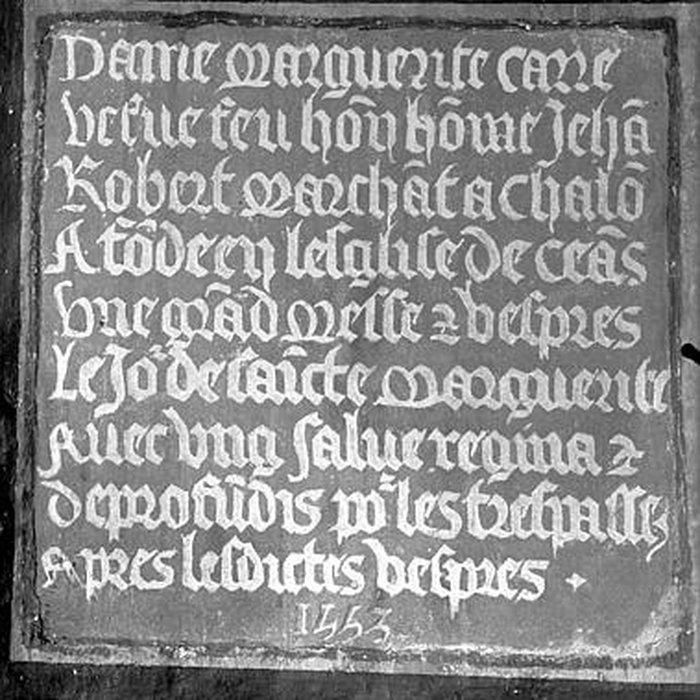 Dame Marguerite carre
vefue feu hōn hōme Jehā
Robert Marchāt a Chalō
A fōde en lesglise de ceās
vne grād Messe & vespres
le Jōr de saīcte Marguerite
Auec vng salue regina &
deprofūdis por les trespassez
Apres lesdictes vespres +
1553